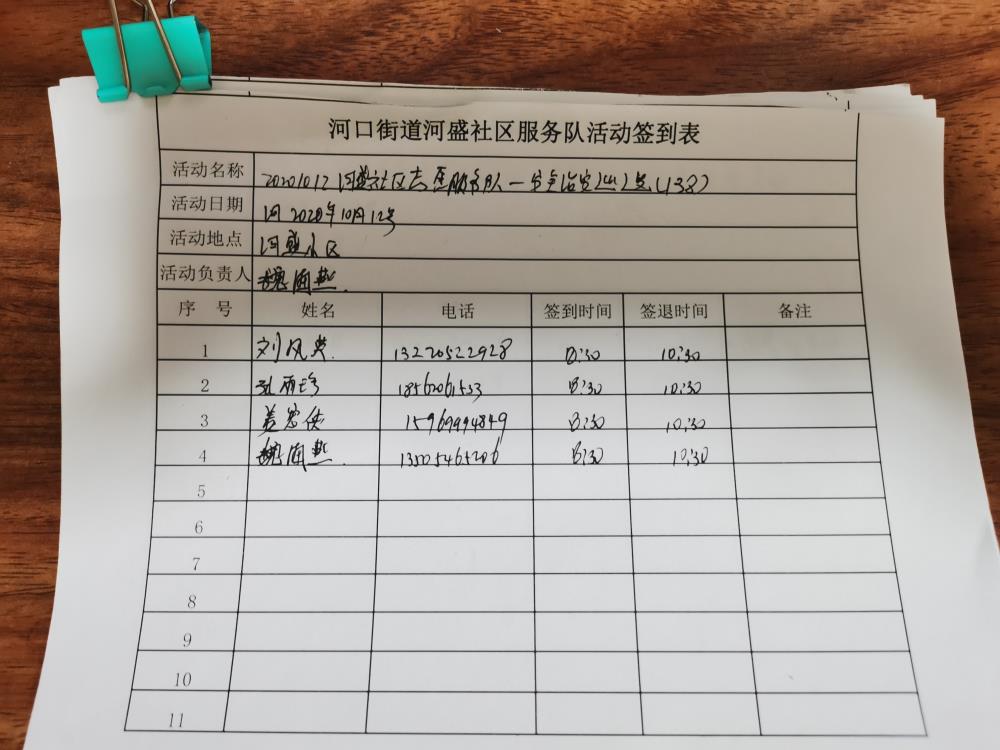 河口街道河盛社区服务队活动签到表
活动名称 20201012 河盛社区志愿服务队一
活动日期 2020年10月12号
活动地点 河盛小区
活动负责人 魏
序号 姓名 电话 签到时间 签退时间 备注
1 刘风 13220522928 8:30 10:30
2 18562061533 8:30 10:30
3 15969994849 8:30 10:30
4 魏 13505465206 8:30 10:30
5
6
7
8
9
10
11